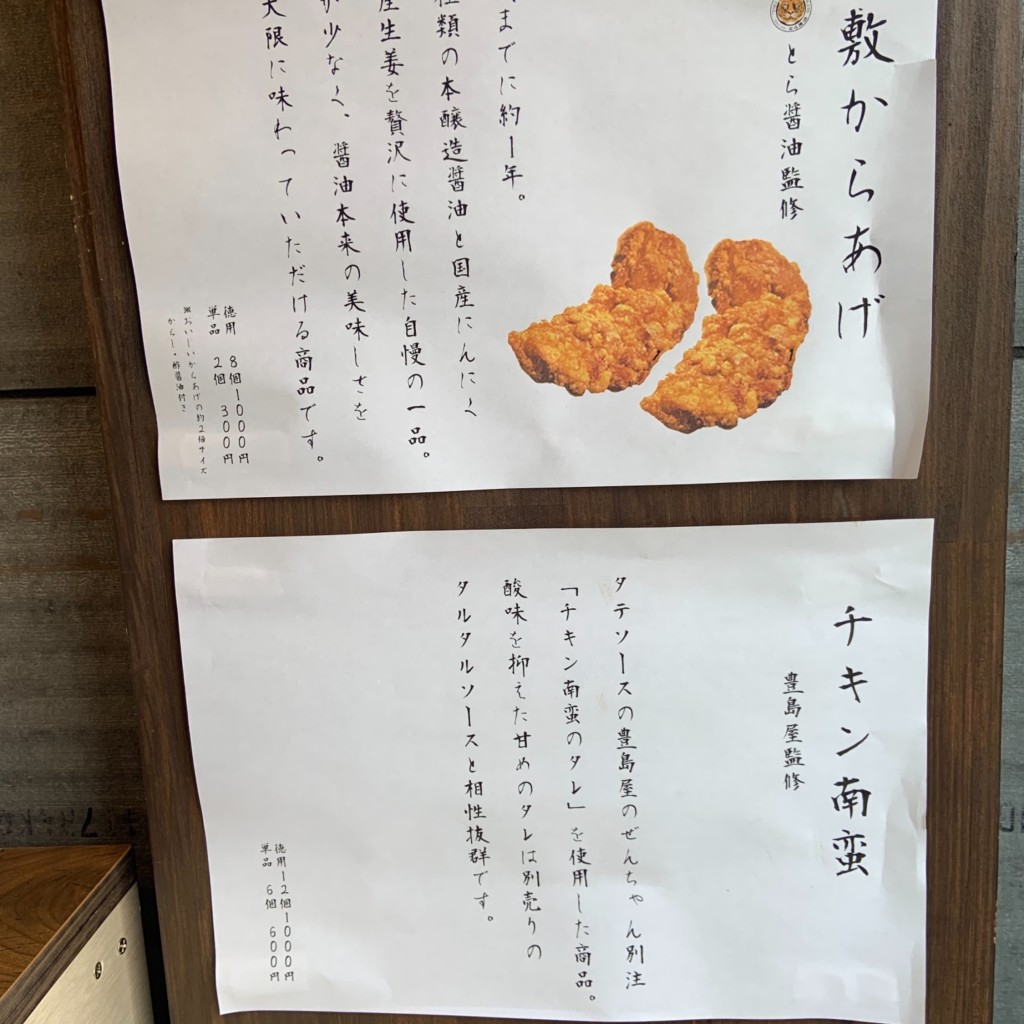 敷からあげ
とら醤油監修
までに約1年。
種類の本醸造醤油と国産にんにく
産生姜を贅沢に使用した自慢の一品。
が少なく、醤油本来の美味しさを
大限に味わっていただける商品です。
徳用 8個1000円
単品 2個 300円
※おいしいからあげの約2倍サイズ
からし・酢醤油付き
チキン南蛮
豊島屋監修
タテソースの豊島屋のぜんちゃん別注
「チキン南蛮のタレ」を使用した商品。
酸味を抑えた甘めのタレは別売りの
タルタルソースと相性抜群です。
徳用12個1000円
単品 6個 600円